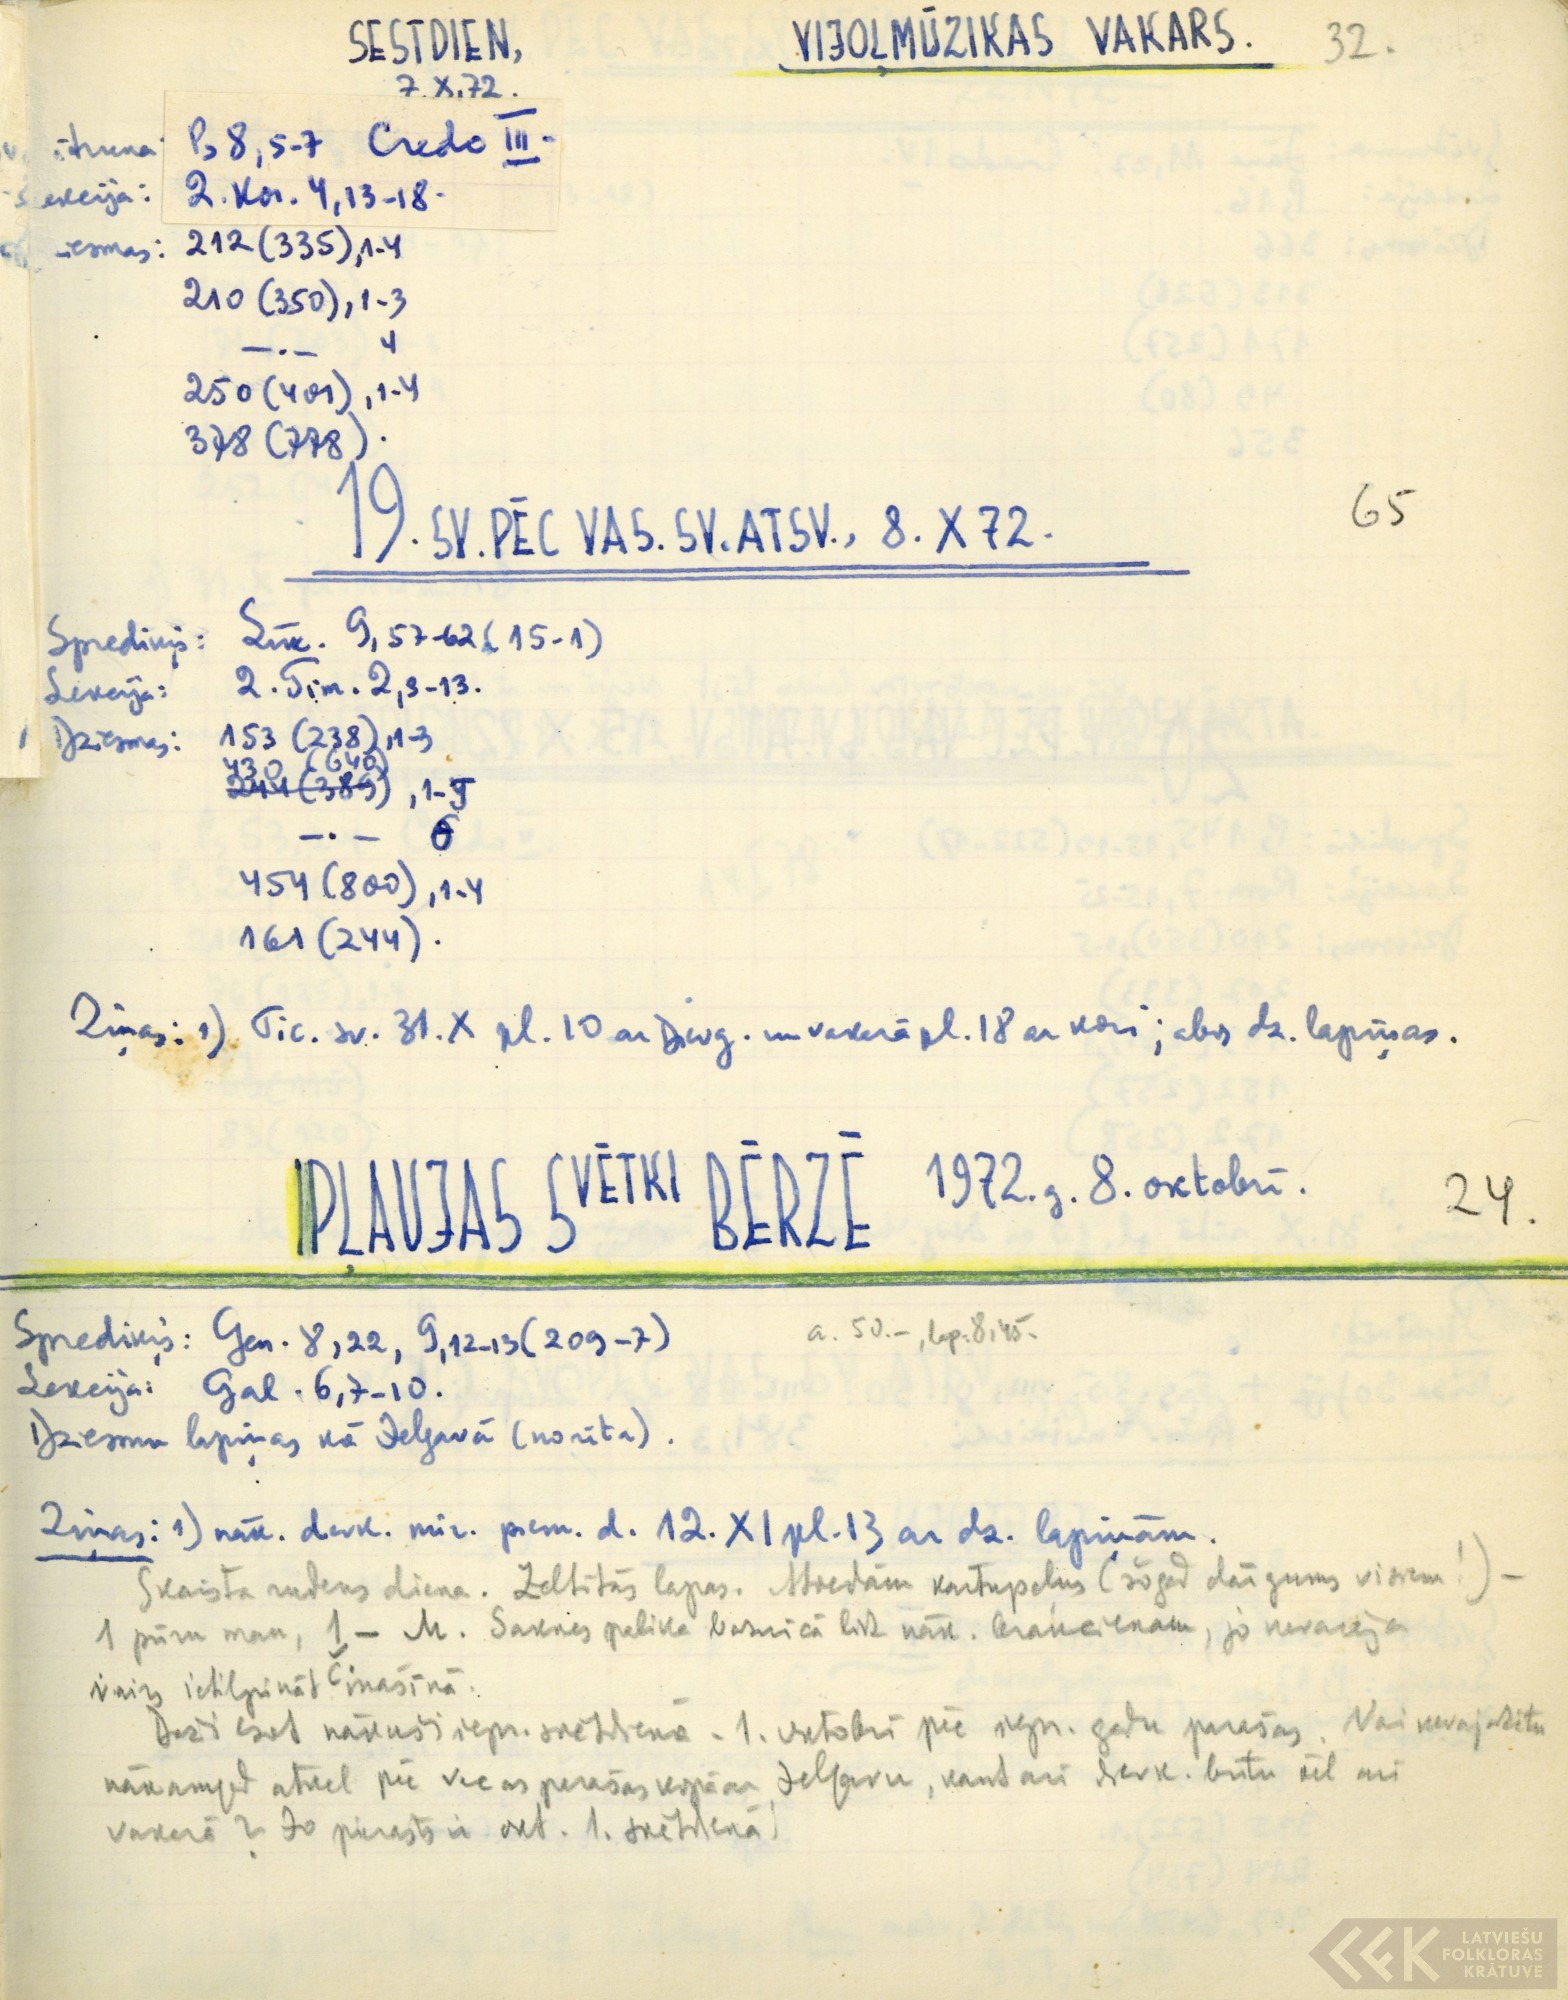 SESTDIEN, VIJOĻMŪZIKAS VAKARS. 32.
7.X.72.
Ps 8,5-7 Credo III.
2.Kor. 4,13-18.
212(335),1-4
210(350),1-3
—.— 4
250(401),1-4
378(778).
19. SV.PĒC VAS.SV.ATSV., 8.X 72. 65
Sprediķis: Lūk. 9,57-62(15-1)
Lekcija: 2.Tim. 2,3-13.
Dziesmas: 153 (238),1-3
430 (640)
241(389) ,1-5
—.— 6
454(800),1-4
161(244).
Ziņas: 1) Tic. sv. 31.X pl. 10 ar Dievg. un vakarā pl.18 ar kori; abos dz. lapiņas.
PĻAUJAS SVĒTKI BĒRZĒ 1972.g. 8. oktobrī. 24.
Sprediķis: Gen. 8,22, 9,12-13(209-7) a. 50.-, lap. 8,45.
Lekcija: Gal. 6,7-10.
Dziesmu lapiņas kā Jelgavā (norīta).
Ziņas: 1) nāk. dievk. mir. piem. d. 12.XI pl.13 ar dz. lapiņām.
Skaista rudens diena. Zeltītās lapas. Atvedām kartupeļus (šogad dārgums visiem!) –
1 pūru man, 1 – M. Saknes palika baznīcā līdz nāk. braucienam, jo nevarēja
vairs ietilpināt mašīnā.
Daži esot nākuši iepr. svētdienā - 1. oktobrī pēc iepr. gadu parašas. Vai nevajadzētu
nākamgad atkal pēc vecas parašas kopā ar Jelgavu, kaut arī dievk. būtu vēl arī
vakarā? Jo pierasts ir okt. 1. svētdienā!
LATVIEŠU
FOLKLORAS
KRĀTUVE